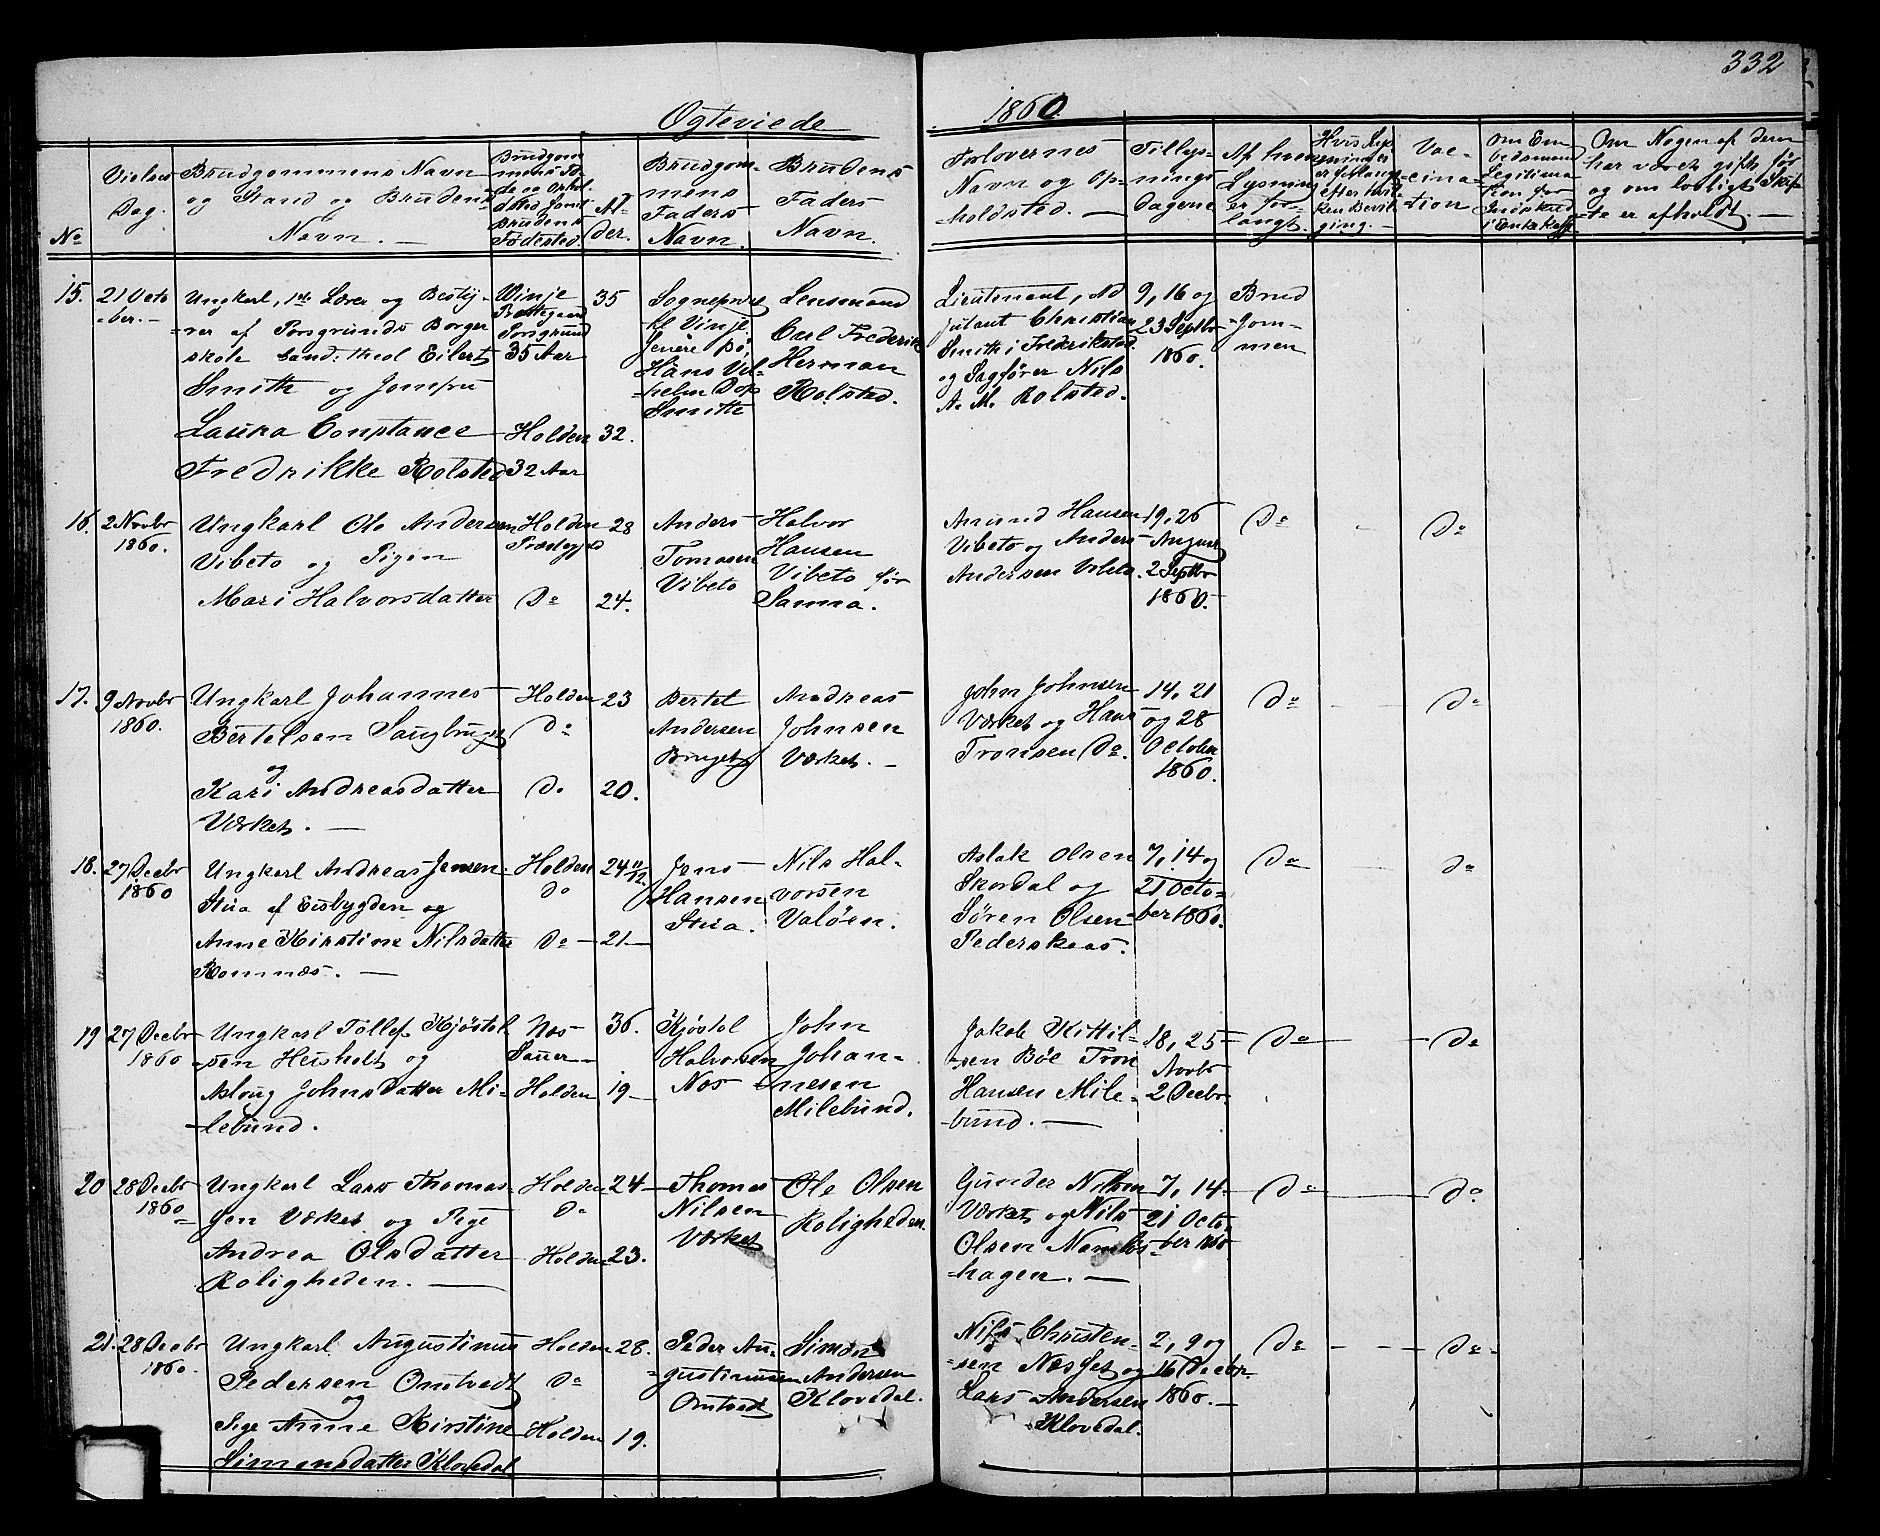 332
Ogteviede 1860.
No
Vielses
Dag.
Brudgommens Navn
og Stand og Brudens
Navn.
Brudgom
mens Fø-
Brudens
Fødested.
Al-
der.
Brudgom-
mens
Faders
Navn.
Brudens
Faders
Navn.
Forlovernes
Navn og Op-
holdsted.
Tillys-
nings
Dagene
Af hvem
Lysning
er for-
langt.
Vac-
cina-
tion
Om Nogen af dem
har været gift før
og om lovligt Skif-
te er afholdt.
15.
21 Octo
ber.
Ungkarl, 1ste Lærer og Besty-
rer af Porsgrunds Borger
skole cand. theol Eilert
Smith og Jomfru
Laura Constance
Fredrikke Rolsted
Winje
Porsgrund
35 Aar
Holden
32 Aar
35
32.
Sognepræst
til Vinje
Hans Vil-
helm
Smith
Lensmand
Carl Frederik
Herman
Rolsted.
Lieutenant, Ad
jutant Christian
Smith i Fredriksted
og Sagfører Nils
A. M. Rolsted.
9, 16 og
23 Septbr
1860.
Brud
gom-
men
16.
2 Novbr
1860.
Ungkarl Ole Andersen
Vibeto og Pigen
Mari Halvorsdatter
Holden
Præstegjeld
Do
28
24.
Anders
Tomasen
Vibeto
Halvor
Hansen
Vibeto før
Sanna.
Amund Hansen
Vibeto og Anders
Andersen Vibeto.
19, 26
August
2 Septbr
1860.
Do
Do
17.
9 Novbr
1860.
Ungkarl Johannes
Bertelsen Saugbruget
og
Kari Andreasdatter
Værket.
Holden
Do
Do
23
20.
Bertel
Andersen
Bruget
Andreas
Johnsen
Værket.
John Johnsen
Værket og Hans
Tronsen Do.
14, 21
og 28
October
1860.
Do
Do
18.
27 Decbr
1860
Ungkarl Andreas Jensen
Stua af Eisbygden og
Anne Kirstine Nilsdatter
Romnæs.
Holden
Do
Do
24 11/12.
21
Jens
Hansen
Stua.
Nils Hal-
vorsen
Valöen.
Aslak Olsen
Skordal og
Sören Olsen
Pederskaas.
7, 14 og
21 Octo-
ber 1860.
Do
Do
19
27 Decbr
1860
Ungkarl Tollef Kjöstol
sen Heisholt og
Aslaug Johnsdatter Mi-
lebund.
Næs
Sauer
Holden
36.
19
Kjöstol
Halvorsen
Næs
John
Johan-
nesen
Milebund.
Jakob Kittil-
sen Böe Tron
Hansen Mile-
bund.
18, 25
Novbr
2 Decbr.
Do
Do
20
28 Decbr
1860
Ungkarl Lars Thomas-
sen Værket og Pige
Andrea Olsdatter
Roligheden.
Holden
Do
Holden
24
23.
Thomas
Nilsen
Værket
Ole Olsen
Roligheden.
Gunder Nilsen
Værket og Nils
Olsen Namlös-
hagen.
7, 14
21 Octo-
ber 1860
Do
Do
21.
28 Decbr
1860.
Ungkarl Augustinus
Pedersen Omtvedt
og
Pige Anne Kirstine
Simensdatter Klovedal
Holden
Do
Holden
28.
19.
Peder Au-
gustinussen
Omtvedt
Simen
Andersen
Klovedal.
Nils Christen-
sen Næsset og
Lars Andersen
Klovedal.
2, 9 og
16 Decbr.
1860.
Do
Do